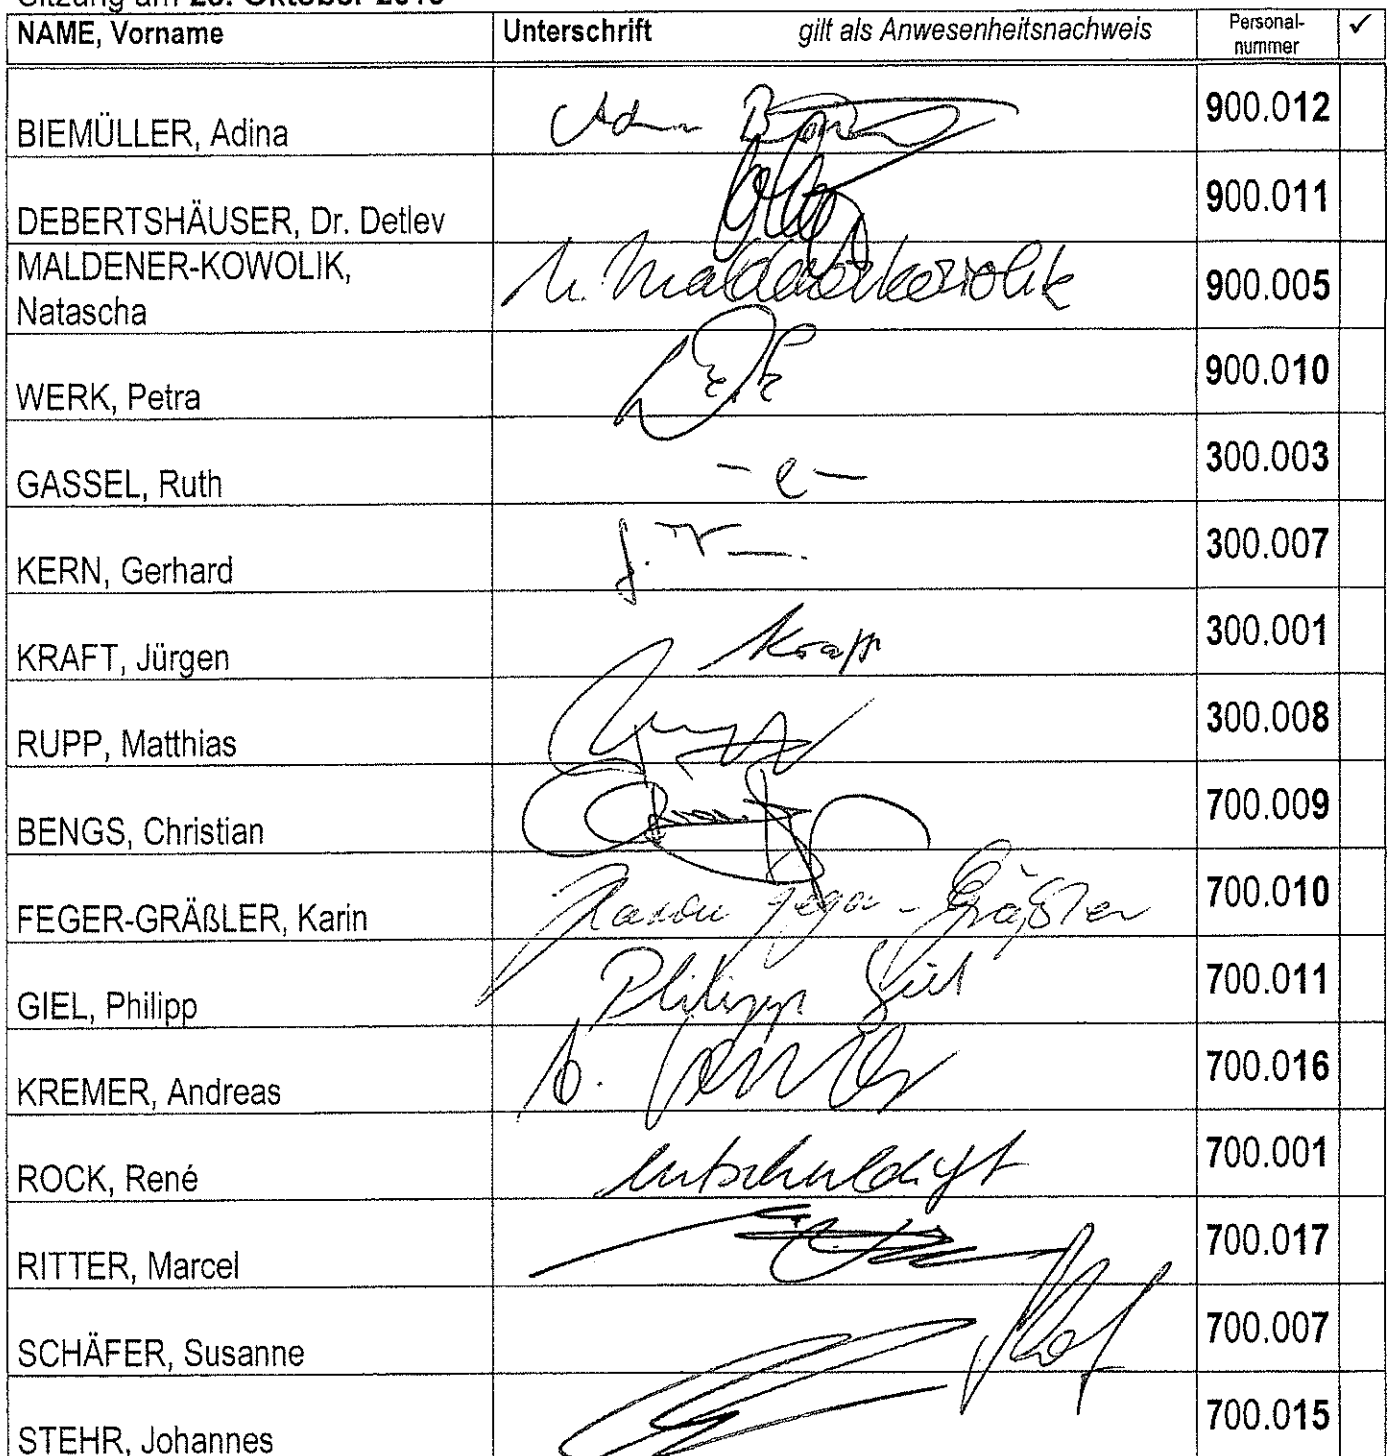 Sitzung am
NAME, Vorname Unterschrift gilt als Anwesenheitsnachweis Personal-nummer ✓
BIEMÜLLER, Adina 900.012
DEBERTSHÄUSER, Dr. Detlev 900.011
MALDENER-KOWOLIK, Natascha N. Maldenerkowolik 900.005
WERK, Petra 900.010
GASSEL, Ruth - e - 300.003
KERN, Gerhard 300.007
KRAFT, Jürgen Kraft 300.001
RUPP, Matthias 300.008
BENGS, Christian 700.009
FEGER-GRÄßLER, Karin Karin Feger-Gräßler 700.010
GIEL, Philipp Philipp Giel 700.011
KREMER, Andreas A. 700.016
ROCK, René entschuldigt 700.001
RITTER, Marcel 700.017
SCHÄFER, Susanne 700.007
STEHR, Johannes 700.015